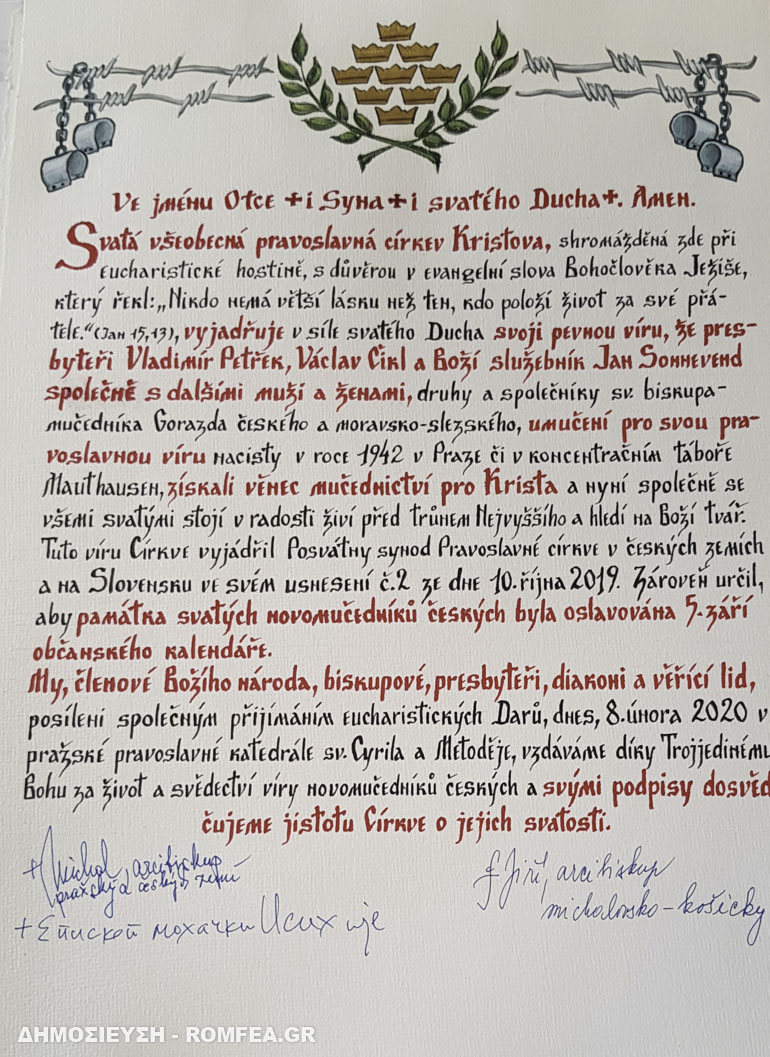 Ve jménu Otce + i Syna + i svatého Ducha +. Amen.
Svatá všeobecná pravoslavná církev Kristova, shromážděná zde při
eucharistické hostině, s důvěrou v evangelní slova Bohočlověka Ježíše,
který řekl: „Nikdo nemá větší lásku než ten, kdo položí život za své přá-
tele.“ (Jan 15,13), vyjadřuje v síle svatého Ducha svoji pevnou víru, že pres-
byteři Vladimír Petřek, Václav Čikl a Boží služebník Jan Sonnevend
společně s dalšími muži a ženami, druhy a společníky sv. biskupa-
mučedníka Gorazda českého a moravsko-slezského, umučení pro svou pra-
voslavnou víru nacisty v roce 1942 v Praze či v koncentračním táboře
Mauthausen, získali věnec mučednictví pro Krista a nyní společně se
všemi svatými stojí v radosti živí před trůnem Nejvyššího a hledí na Boží tvář.
Tuto víru Církve vyjádřil Posvátný synod Pravoslavné církve v českých zemích
a na Slovensku ve svém usnesení č.2 ze dne 10. října 2019. Zároveň určil,
aby památka svatých novomučedníků českých byla oslavována 5. září
občanského kalendáře.
My, členové Božího národa, biskupové, presbyteři, diakoni a věřící lid,
posíleni společným přijímáním eucharistických Darů, dnes, 8. února 2020 v
pražské pravoslavné katedrále sv. Cyrila a Metoděje, vzdáváme díky Trojjedinému
Bohu za život a svědectví víry novomučedníků českých a svými podpisy dosvěd
čujeme jistotu Církve o jejich svatosti.
+ Michal, arcibiskup
pražský a českých zemí
+ Jiří, arcibiskup
michalovsko-košický
+ Епископ мохачки Исихије
ΔΗΜΟΣΙΕΥΣΗ - ROMFEA.GR